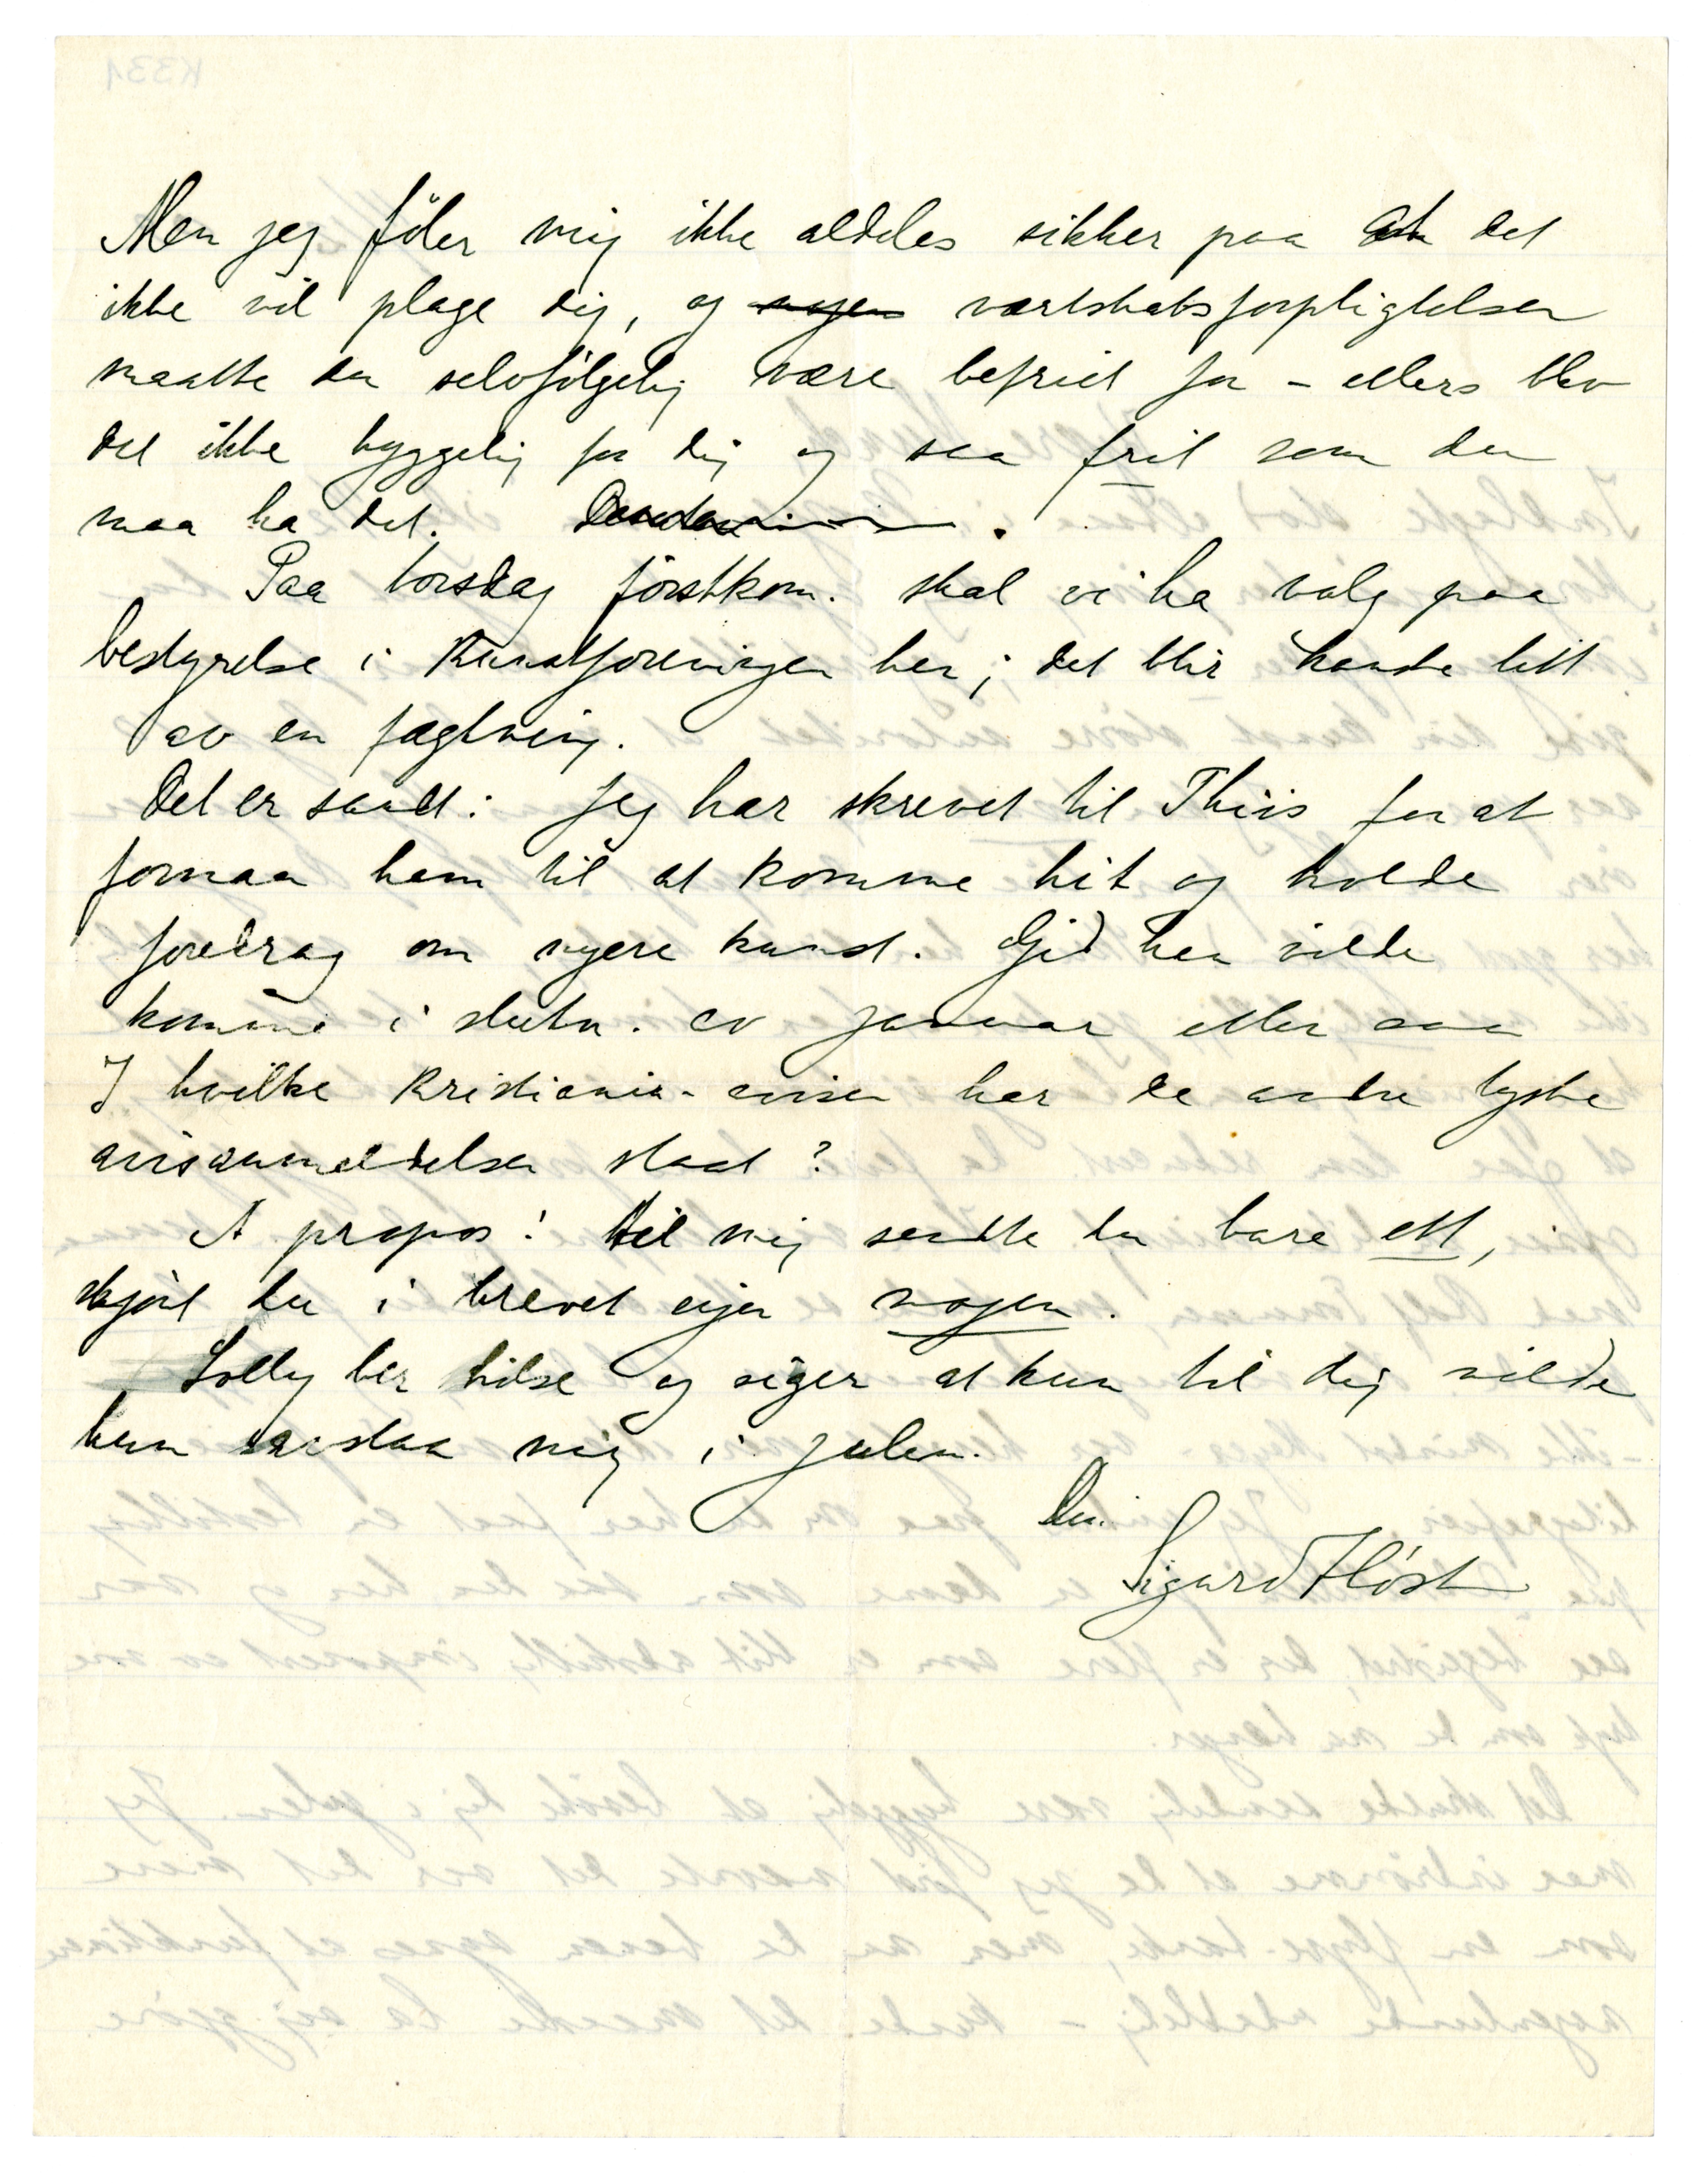 Men jeg föler mig ikke aldeles sikker paa at det
ikke vil plage dig, og nogen vertskabsforpligtelser
maatte du selvfölgelig være befriet for – ellers blev
det ikke hyggelig for dig og saa frit som du
maa ha det.
Paa torsdag förstkom. skal vi ha valg paa
bestyrelse i Kunstforeningen her; det blir kanske litt
av en fægtning.
Det er sandt: Jeg har skrevet til Thiis for at
formaa ham til at komme hit og holde
foredrag om nyere kunst. Gid han vilde
komme i slutn. av januar eller saa
I hvilke Kristiania-aviser har de andre tyske
avisanmeldelser staat?
A propos! Til mig sendte du bare ett,
skjönt du i brevet siger nogen.
Lolly ber hilse og siger at kun til dig vilde
hun avstaa mig i julen.
Din
Sigurd Höst